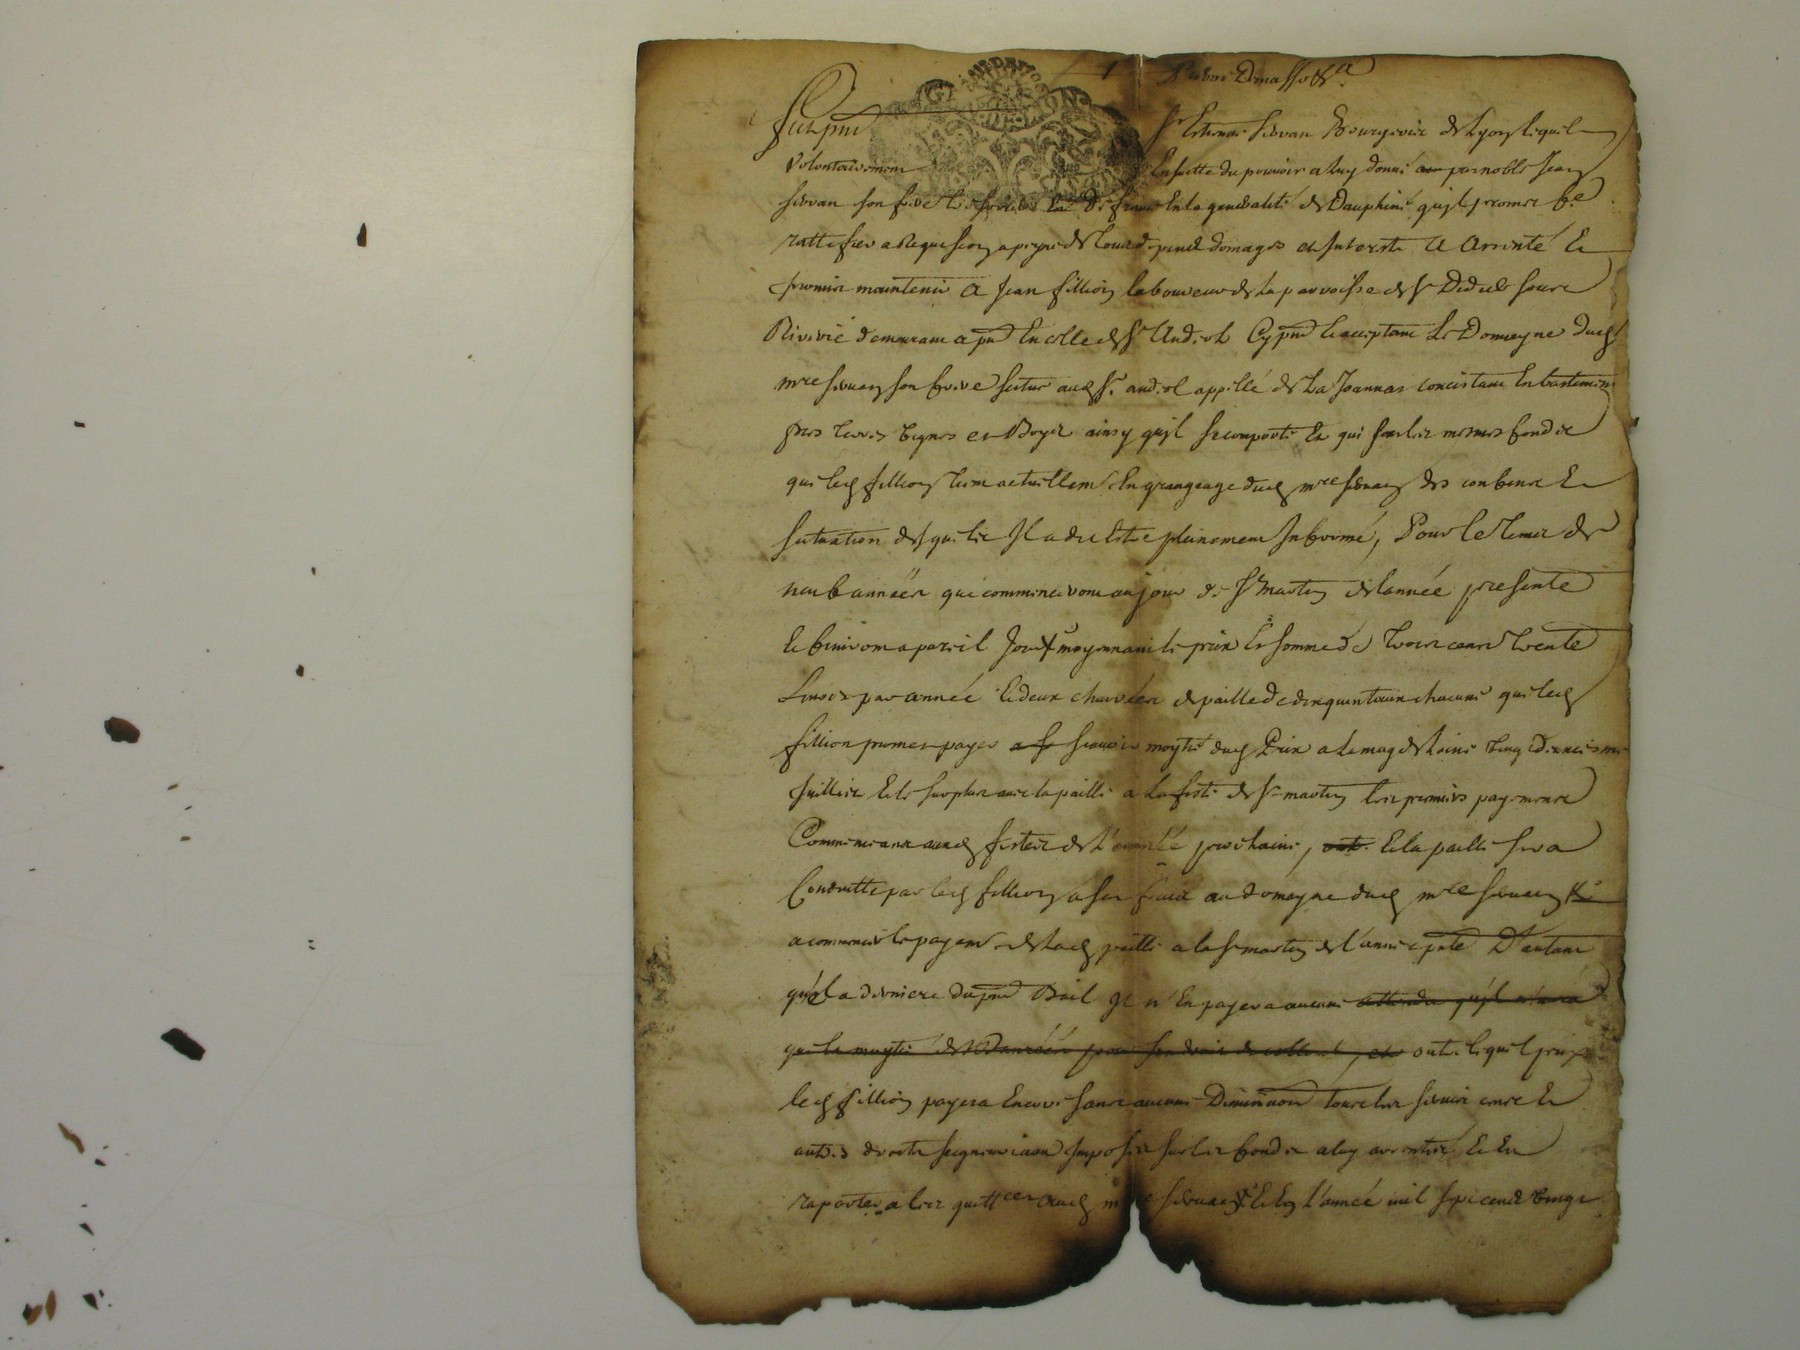 Fut pnt Sr Estienne Servan Bourgeois de Lyon lequel
Volontairement Ensuitte du pouvoir a luy donné par noble Jean
Servan son frere Tresorier De france En la generalité de Dauphiné qu'jl promet fe
rattiffier a Requisiōn a peyne de tous depend domages et Interests A Arenté Et
promis maintenir A Jean fillion laboureur de La parroisse de St Didier soubs
Rivirié demeurant a pnt En celle de St Andiol Cy pnt et acceptant Le Domeyne dud
mre Servan son frere scitué aud St andiol appellé de La Joannas concistant En bastiments
prés Terres Vignes et Boys ainsy qu'jl se comporte Et qui sont les mesmes fonds
que led fillion tient actuellemt En grangeage dud mre Servan des contenus Et
scituation desquels Jl a dit Estre pleinement Informé, Pour le Temps de
neuf années qui commenceront au jour de St Martin de l'année presente
Et finiront a pareil Jour moyennant le prix Et somme de Trois cents trente
Livres par année Et deux charrées de paille de dix quintaux chacune que led
fillion promet payer scavoir moytié dud Prix a
Juillet Et le surplus avec la paille a La feste de St martin les premiers payements
Commenceants auxd festes de L'année prochaine, Et la paille sera
Conduitte par led fillion a ses frais au domeyne dud mre Servan
a commencer le payemt de Lad paille a la St martin de l'année pnte D'autant
qu'a la derniere du pnt Bail Jl n'En payera aucune attendu qu'jl n'aura
que la moytié des Danrées pour son droit de colleur, et outre lequel prix
led fillion payera Encore sans aucune Diminuōn tous les servis cens Et
autres droits seigneuriaux Imposés sur les fonds a luy arentés Et En
raporter a les quittces aud mre Servan Et En L'année mil sept cents vingt